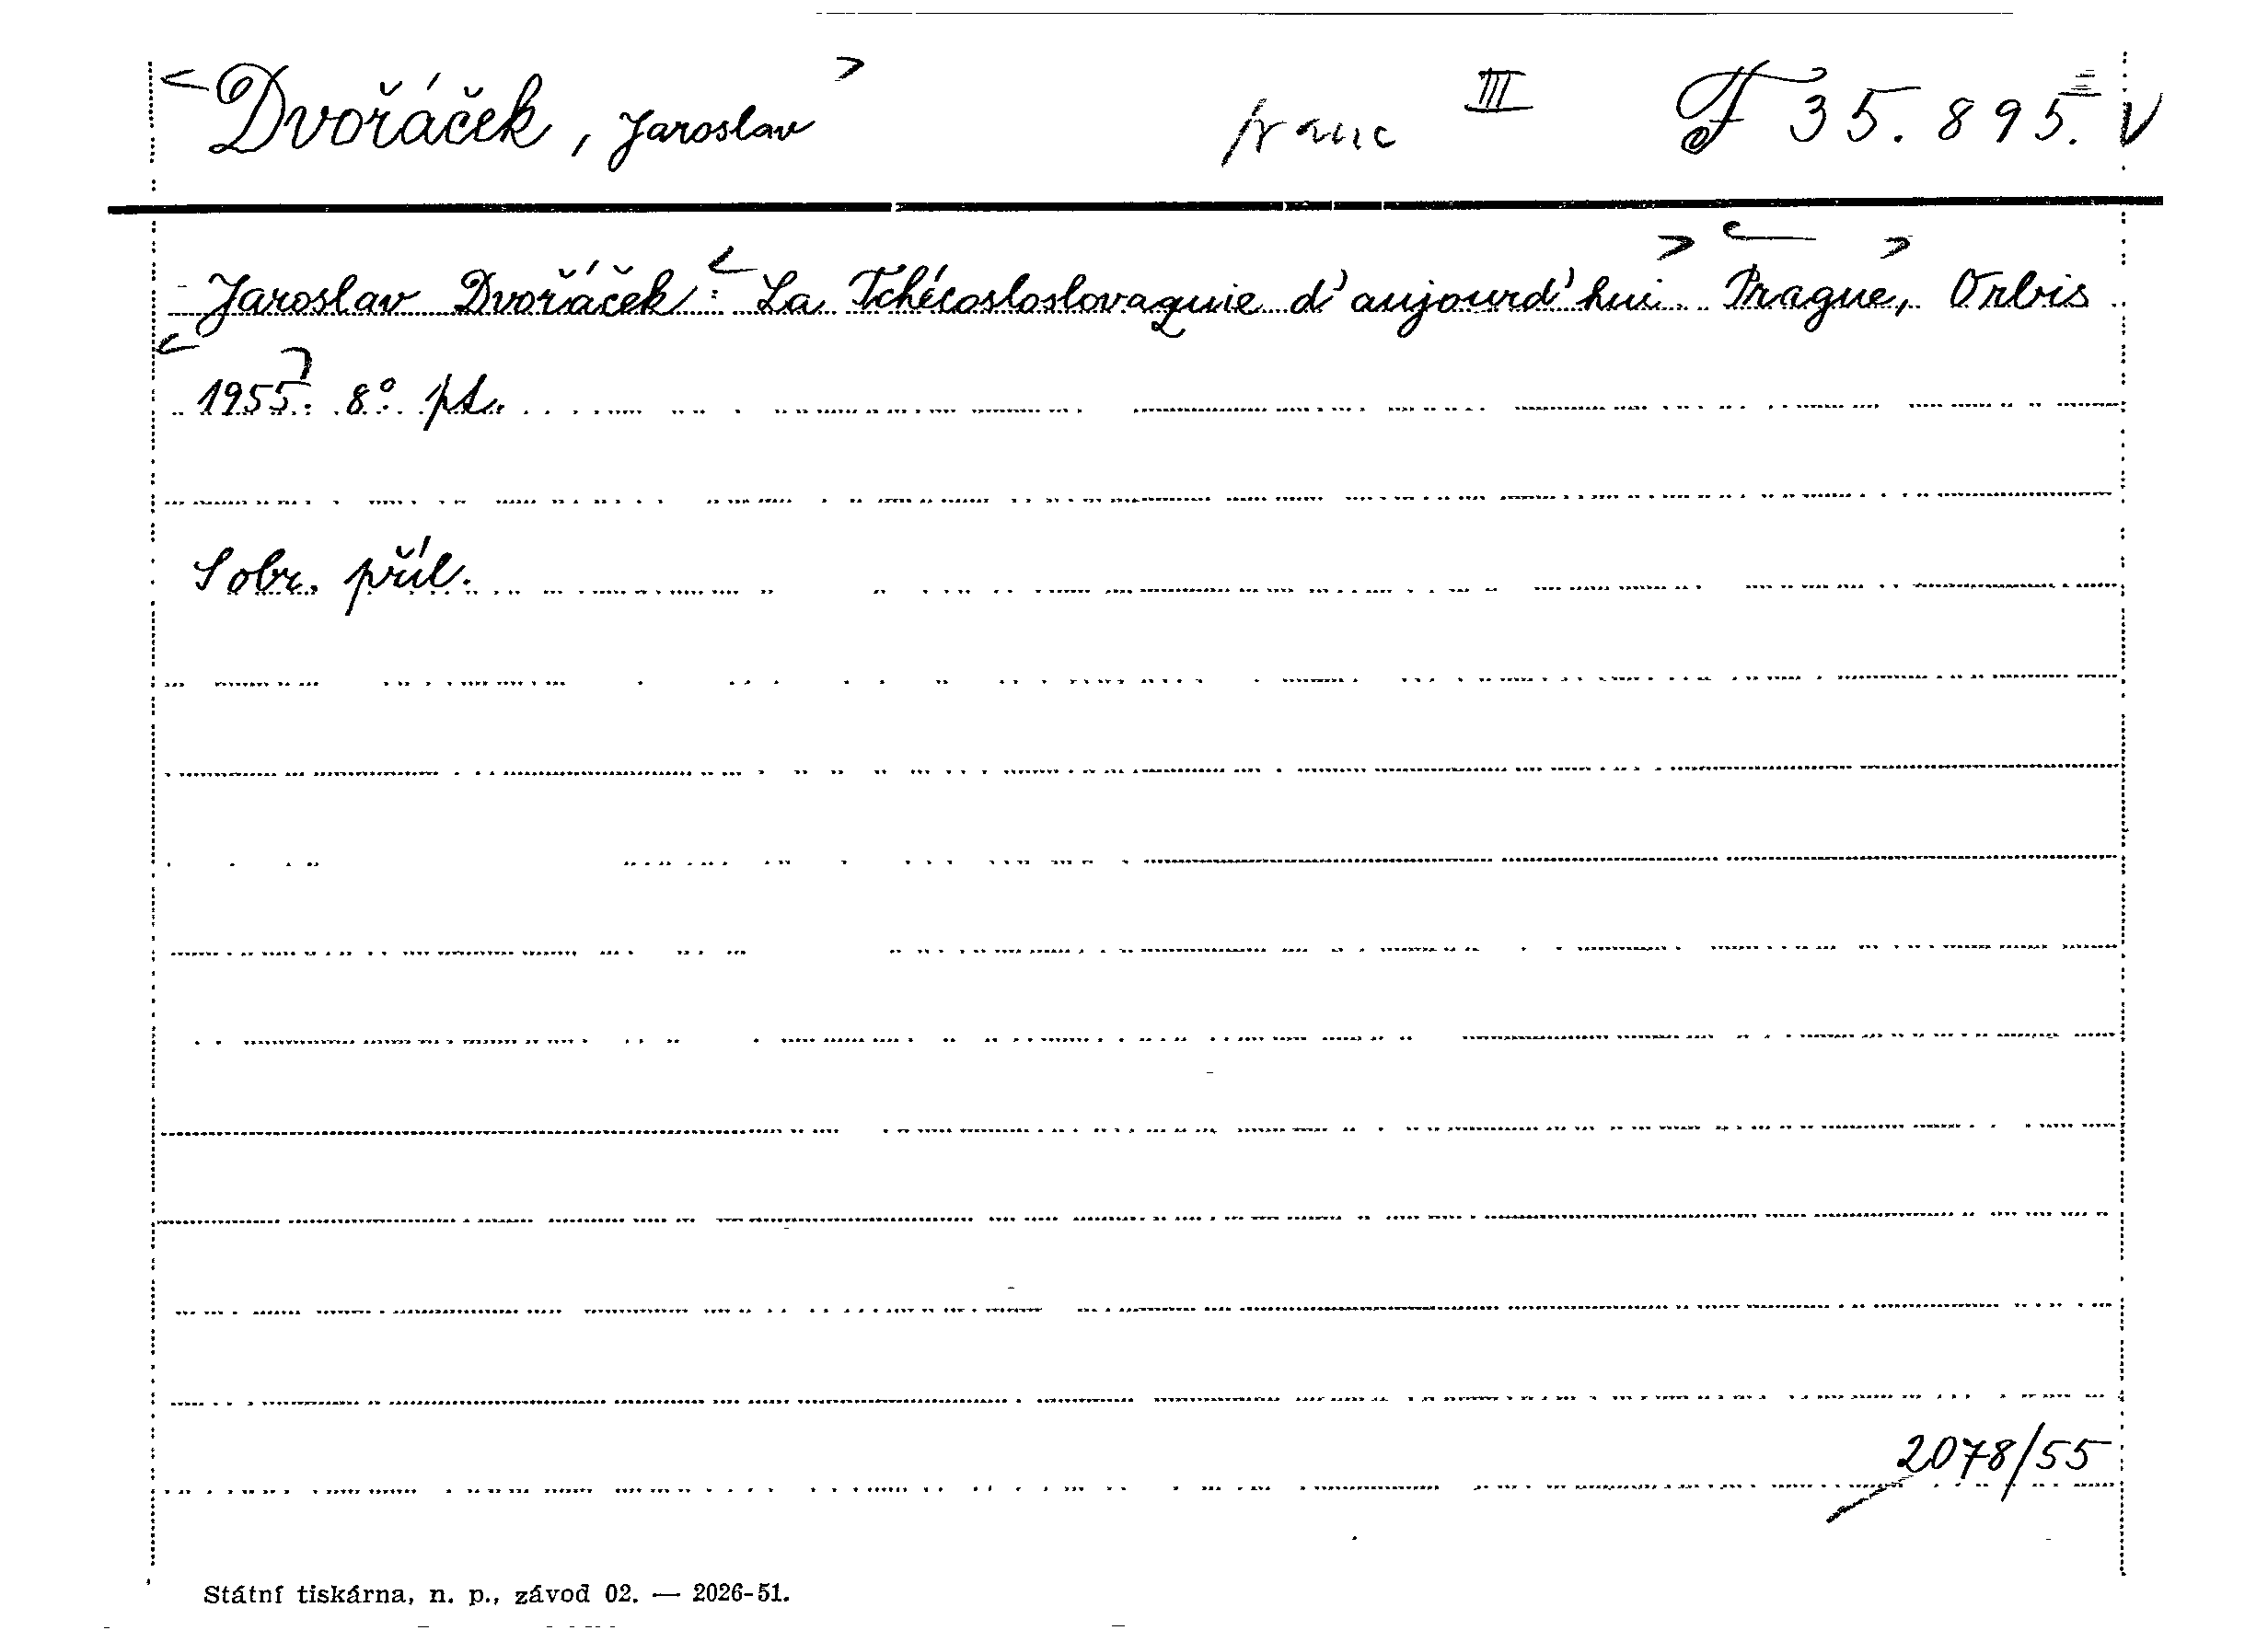 <Dvořáček, Jaroslav> franc III F 35.895. V
Jaroslav Dvořáček: <La Tchécosloslovaquie d'aujourd'hui> <Prague>, Orbis
<1955>. 8° pt.
S obr. příl.
2078/55
Státní tiskárna, n. p., závod 02. — 2026-51.